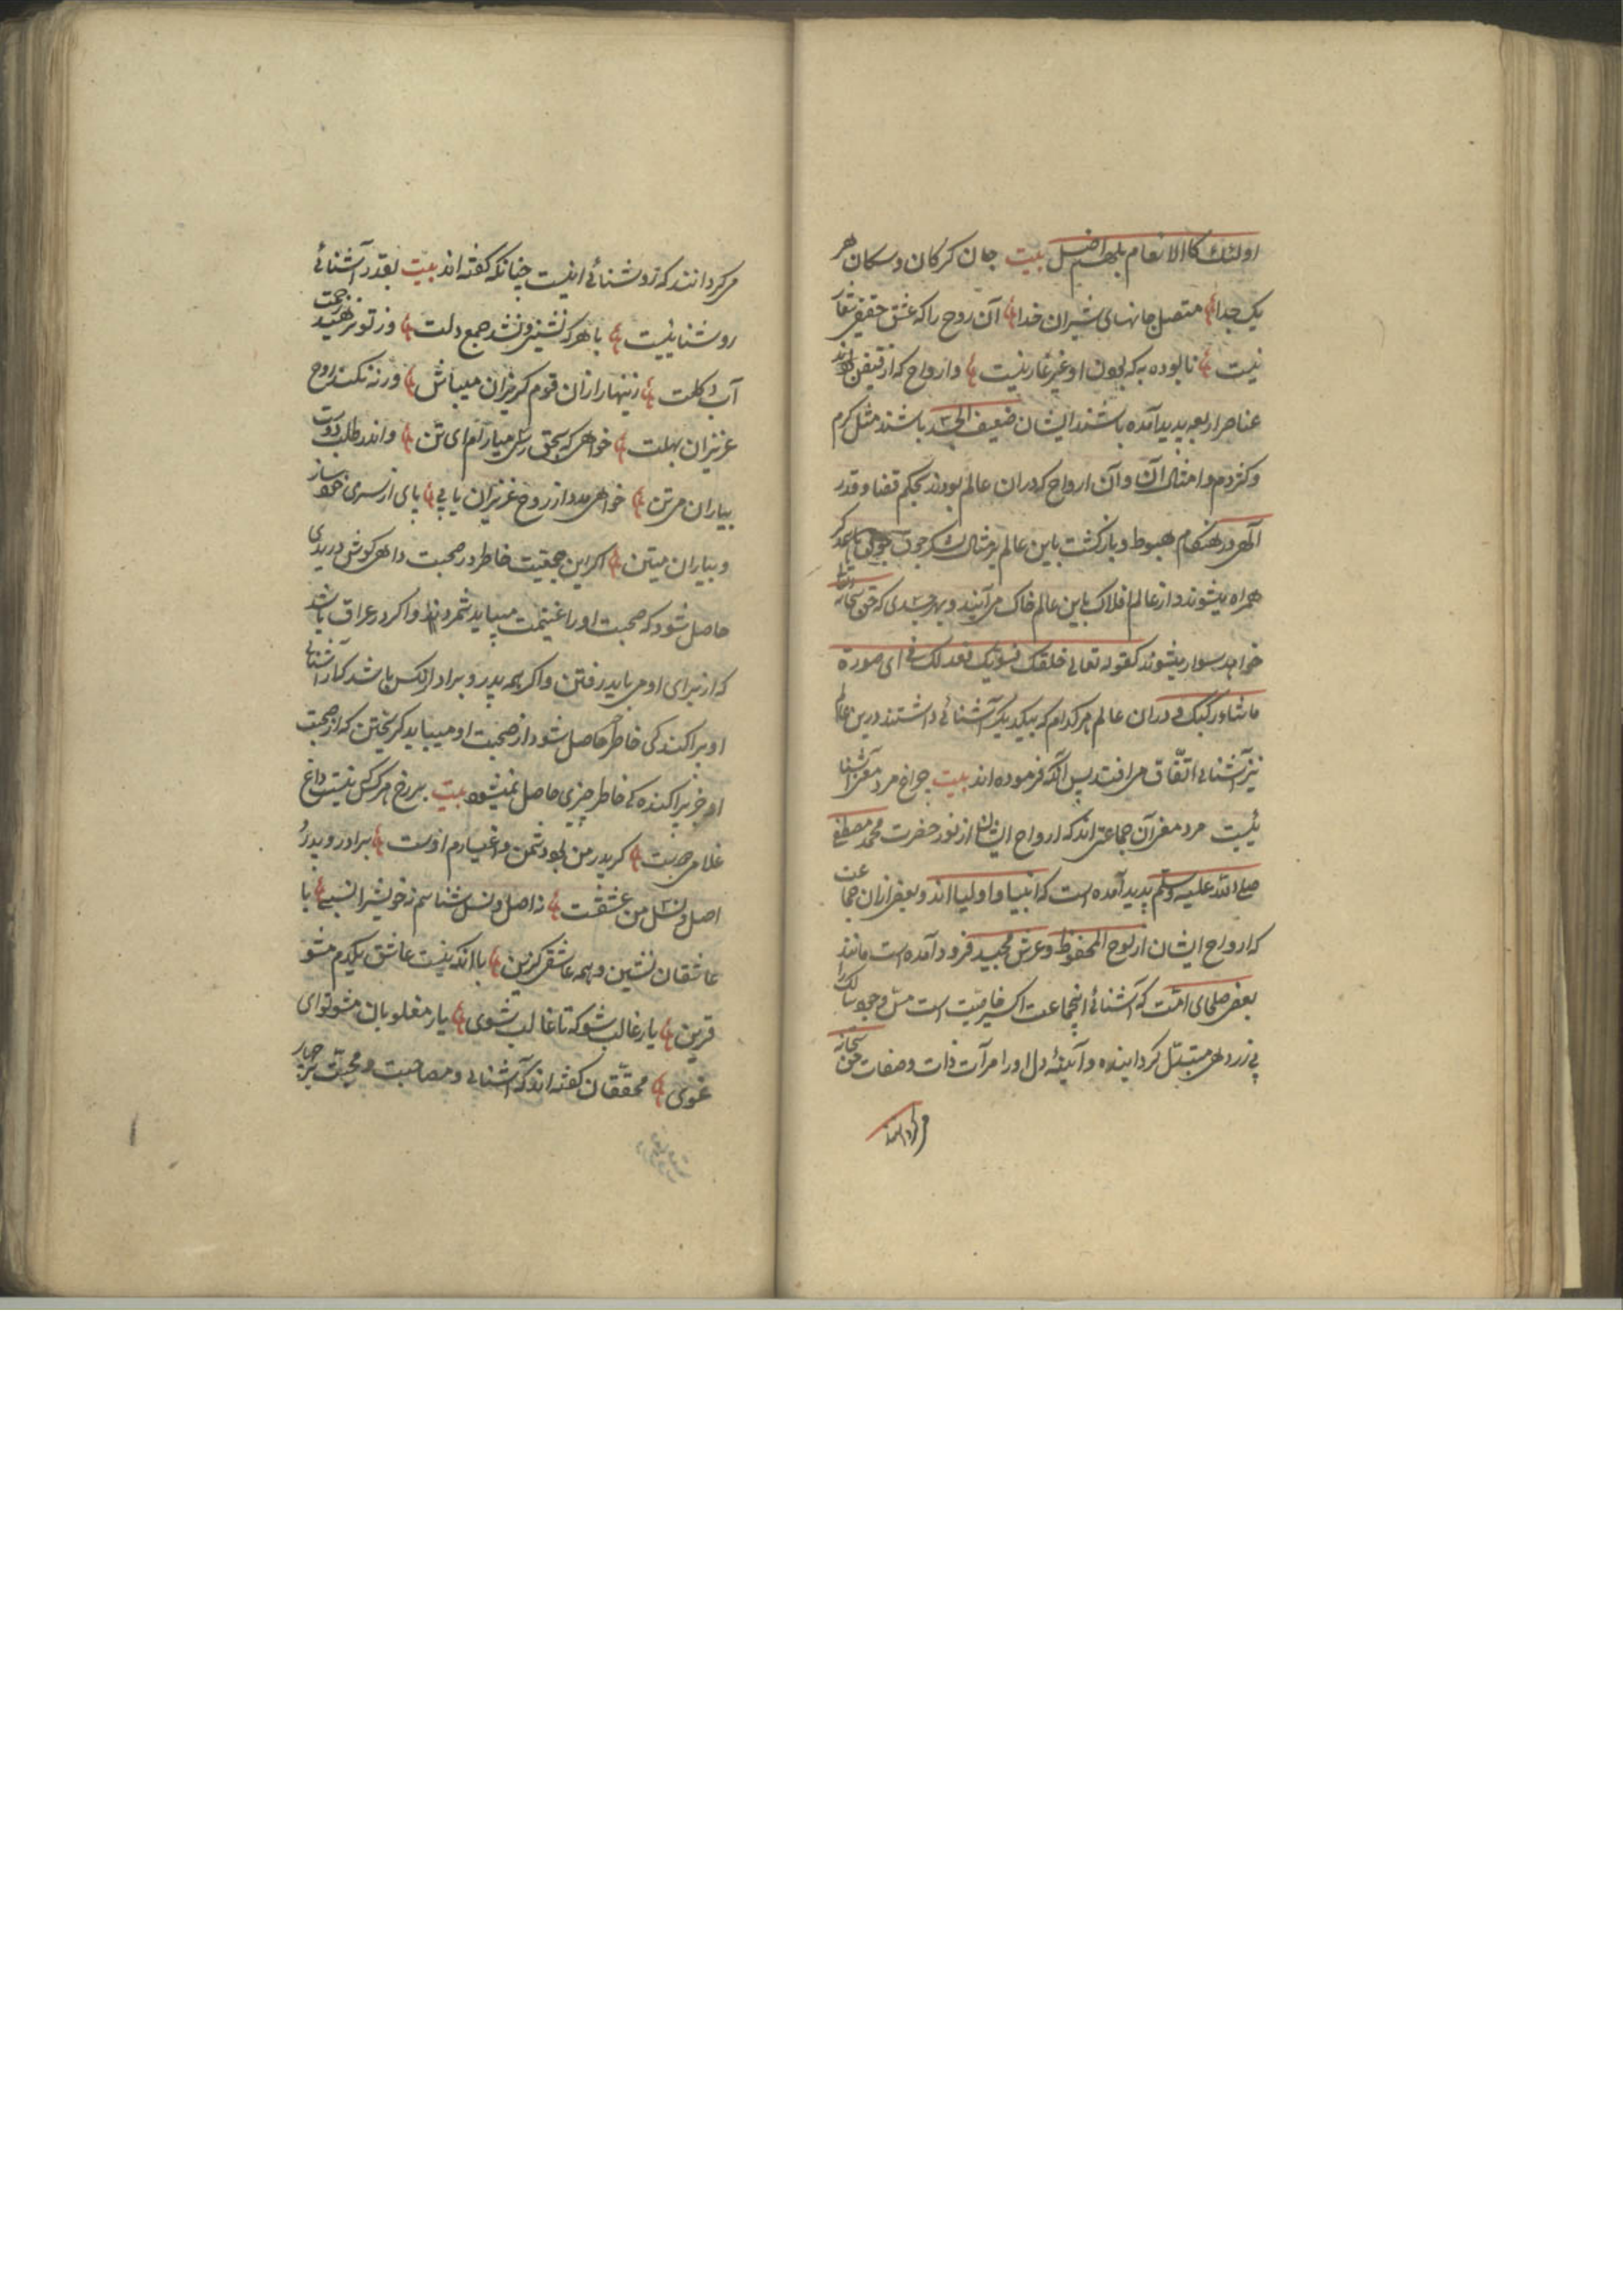 اولئك كاالانعام بلهم اضل بیت جان کرکان و سکان هر
یک جدا متصل جانهای شیران خدا آن روح را که عشق حقیقی شعار
نیست نابوده به که بودن او غیر عار نیست و ارواح که از فیض
عناصر اربعه پدید آمده باشند ایشان ضعیف باشند مثل کرم
و کژدم و امثال آن و آن ارواح که دران عالم بودند بحکم قضا و قدر
الهی در هنکام هبوط و بازکشت باین عالم بر مثال لشکر جوق جوق
همراه میشوند و از عالم افلاک باین عالم خاک می آیند و بهر جسدی که حق سبحانه
خواهد سوار میشوند کقوله تعالی خلقك فسویك فعدلك فی ای صورة
ماشاء رکبك و دران عالم هر کدام که بیکدیگر آشنائی داشتند درین عالم
نیز آشنائی اتفاق می افتد پس آنکه فرموده اند بیت چراغ مرد مغرا آشنا
نیست مرد مغرآن جماعتی اند که ارواح ایشان از نور حضرت محمد مصطفی
صلی الله علیه وسلم پدید آمده است که انبیا و اولیا اند و بعض ازان جماعت
که ارواح ایشان از لوح المحفوظ و عرش مجید فرود آمده است مانند
بعض صلحای امت که آشنائی اینجماعت اکسیر خاصیت است مس وجود سالک را
بزر دهی مبتدل کرداینده و آیینهٔ دل او را مرآت ذات و صفات حق سبحانه
می کردانند
می کردانند که روشنائی اینست چنانکه کفته اند بیت بقدر آشنائی
روشنایئیت با هر که نشینی و نشد جمع دلت وز تو نرهید زحمت
آب و کلت زینهار ازان قوم کریزان میباش ورنه نکند روح
عزیزان بهلت خواهی که بحق رسی میارام ای تن و اندر طلب دوست
بیاران می تن خواهی مدد از روح عزیزان یابی پای از سر خود ساز
و بیاران میتن اکر این جمعیت خاطر در صحبت داهی کوش دریدی
حاصل شود که صحبت او را غنیمت میباید شمردند و اکر در عراق باشد
که از برای او می باید رفتن و اکر همه پدر و برادر آنکس باشد که از آشنائی
او پراکندکی خاطر حاصل شود از صحبت او میباید کریختن که از صحبت
او جز پراکنده کی خاطر چیزی حاصل نمیشود بیت بر رخ هر کس که نیست داغ
غلامی دوست کر پدر من بود دشمن و اغیارم اوست برادر و پدر و
اصل و نسل من عشقست ز اصل و نسل شناسم نه خویش را نسبی با
عاشقان نشین و همه عاشقی کزین با آنکه نیست عاشق یکدم مشو
قرین یار غالب شو که تا غالب شوی یار مغلوبان مشو تو ای
غوی محققان کفته اند که آشنائی و مصاحبت و محبت بر چهار